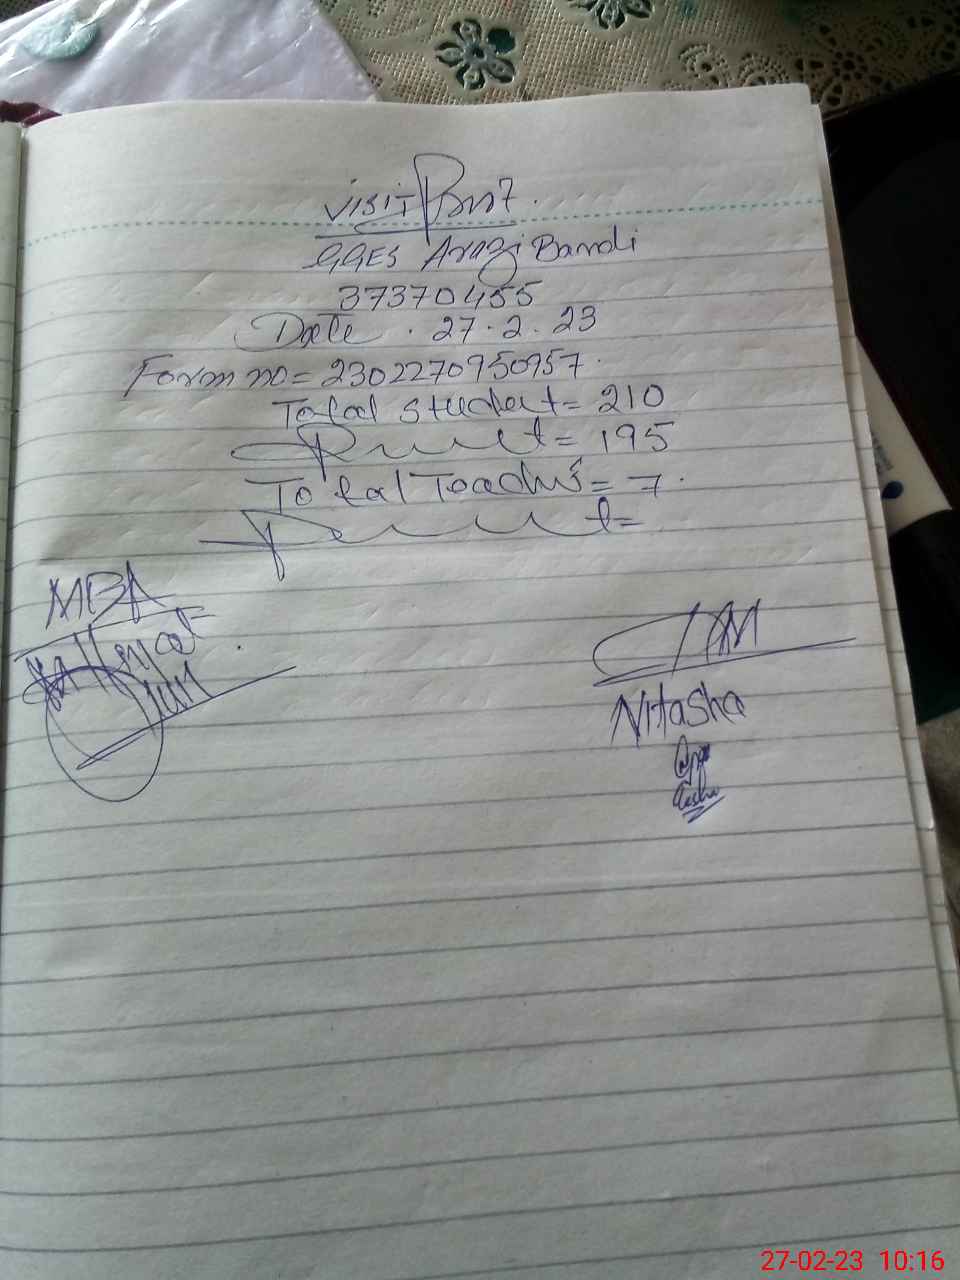 visit
GGES Arazi Bandi
37370455
Date . 27.2.23
Form no= 2302270950957.
Total student= 210
= 195
Total Teachers= 7.
MBA
Nitasha
27-02-23 10:16